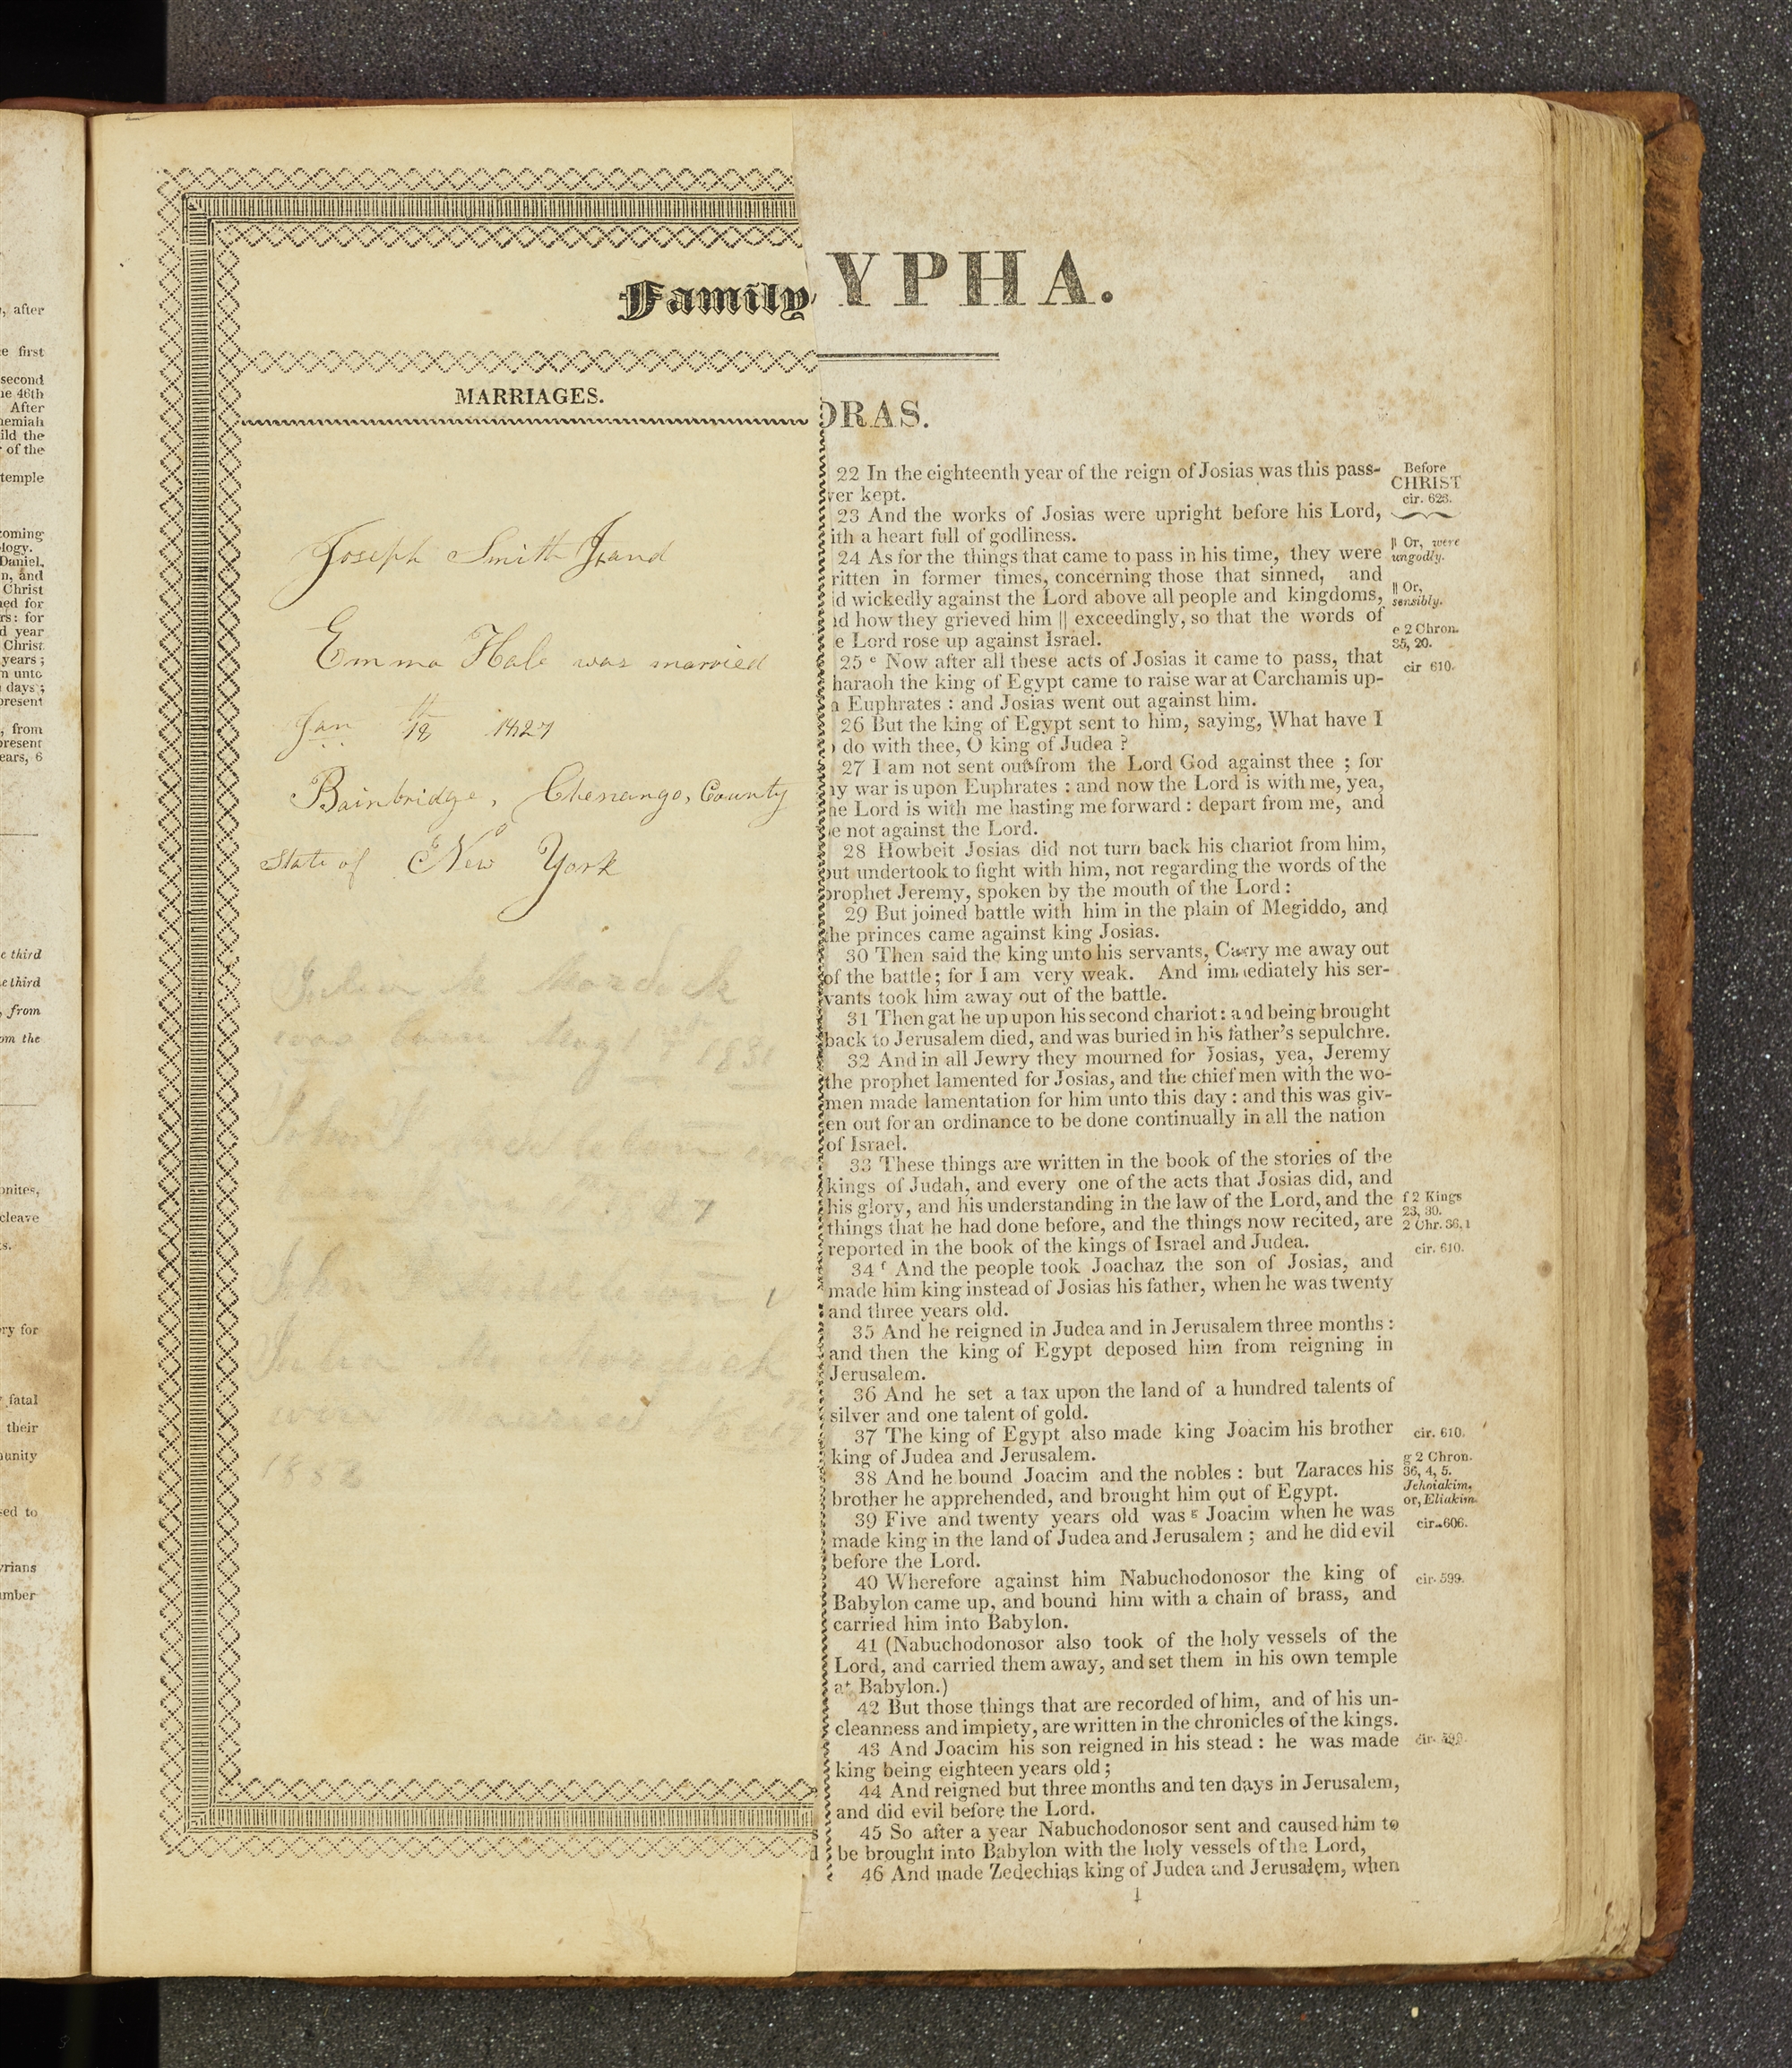 , after
e first
second
ne 46th
After
nemiah
ild the
of the
temple
coming
logy.
Daniel,
n, and
Christ
ned for
rs: for
d year
Christ
years ;
n unto
days ;
present
, from
present
ears, 6
e third
e third
, from
om the
onites,
cleave
s.
ry for
fatal
their
unity
sed to
yrians
umber
Family
MARRIAGES.
Joseph Smith Jr and
Emma Hale was married
Jan 18th 1827
Bainbridge, Chenango, County
State of New York
Julia M Murdock
was born May 1st 1831
John
John Middleton
Julia M. Murdock
were married
YPHA.
DRAS.
22 In the eighteenth year of the reign of Josias was this pass-
ver kept.
23 And the works of Josias were upright before his Lord,
ith a heart full of godliness.
24 As for the things that came to pass in his time, they were
ritten in former times, concerning those that sinned, and
id wickedly against the Lord above all people and kingdoms,
nd how they grieved him || exceedingly, so that the words of
e Lord rose up against Israel.
25 e Now after all these acts of Josias it came to pass, that
haraoh the king of Egypt came to raise war at Carchamis up-
n Euphrates : and Josias went out against him.
26 But the king of Egypt sent to him, saying, What have I
o do with thee, O king of Judea ?
27 I am not sent out from the Lord God against thee ; for
ny war is upon Euphrates : and now the Lord is with me, yea,
he Lord is with me hasting me forward : depart from me, and
e not against the Lord.
28 Howbeit Josias did not turn back his chariot from him,
but undertook to fight with him, not regarding the words of the
prophet Jeremy, spoken by the mouth of the Lord :
29 But joined battle with him in the plain of Megiddo, and
the princes came against king Josias.
30 Then said the king unto his servants, Carry me away out
of the battle; for I am very weak. And immediately his ser-
vants took him away out of the battle.
31 Then gat he up upon his second chariot : and being brought
back to Jerusalem died, and was buried in his father's sepulchre.
32 And in all Jewry they mourned for Josias, yea, Jeremy
the prophet lamented for Josias, and the chief men with the wo-
men made lamentation for him unto this day : and this was giv-
en out for an ordinance to be done continually in all the nation
of Israel.
33 These things are written in the book of the stories of the
kings of Judah, and every one of the acts that Josias did, and
his glory, and his understanding in the law of the Lord, and the
things that he had done before, and the things now recited, are
reported in the book of the kings of Israel and Judea.
34 f And the people took Joachaz the son of Josias, and
made him king instead of Josias his father, when he was twenty
and three years old.
35 And he reigned in Judea and in Jerusalem three months :
and then the king of Egypt deposed him from reigning in
Jerusalem.
36 And he set a tax upon the land of a hundred talents of
silver and one talent of gold.
37 The king of Egypt also made king Joacim his brother
king of Judea and Jerusalem.
38 And he bound Joacim and the nobles : but Zaraces his
brother he apprehended, and brought him out of Egypt.
39 Five and twenty years old was g Joacim when he was
made king in the land of Judea and Jerusalem ; and he did evil
before the Lord.
40 Wherefore against him Nabuchodonosor the king of
Babylon came up, and bound him with a chain of brass, and
carried him into Babylon.
41 (Nabuchodonosor also took of the holy vessels of the
Lord, and carried them away, and set them in his own temple
at Babylon.)
42 But those things that are recorded of him, and of his un-
cleanness and impiety, are written in the chronicles of the kings.
43 And Joacim his son reigned in his stead : he was made
king being eighteen years old ;
44 And reigned but three months and ten days in Jerusalem,
and did evil before the Lord.
45 So after a year Nabuchodonosor sent and caused him to
be brought into Babylon with the holy vessels of the Lord,
46 And made Zedechias king of Judea and Jerusalem, when
Before
CHRIST
cir. 623.
|| Or, were
ungodly.
|| Or,
sensibly.
e 2 Chron.
35, 20.
cir 610.
f 2 Kings
23, 30.
2 Chr. 36, 1
cir. 610.
cir. 610.
g 2 Chron.
36, 4, 5.
Jehoiakim,
or, Eliakim.
cir. 606.
cir. 599.
cir. 599.